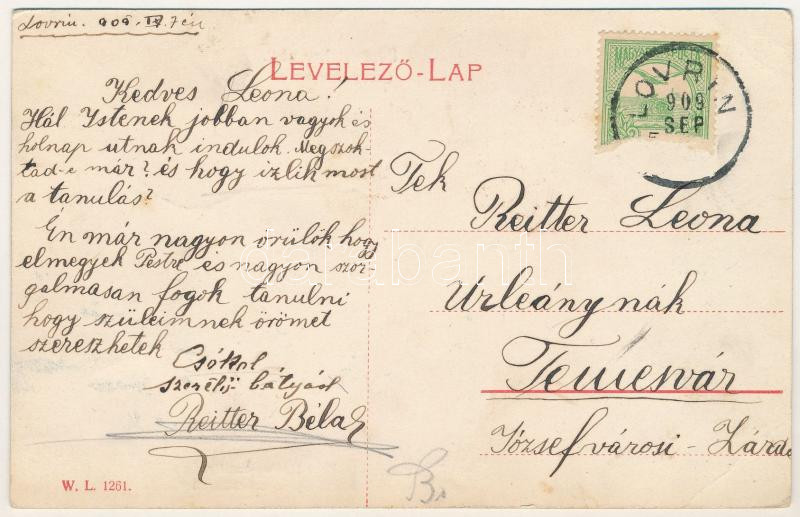 Lovrin. 909. IX. 7én
LEVELEZŐ-LAP
Kedves Leona!
Hál Istenek jobban vagyok és
holnap utnak indulok. Megszok-
tad-e már? és hogy izlik most
a tanulás?
Én már nagyon örülök hogy
elmegyek Pestre és nagyon szor-
galmasan fogok tanulni
hogy szüleimnek örömet
szerezhetek
Csókol
szerető bátyád
Reitter Béla
W. L. 1261.
LOVRIN
909
SEP
Tek
Reitter Leona
Urleánynák
Temesvár
Józsefvárosi - Zárda
darabanth